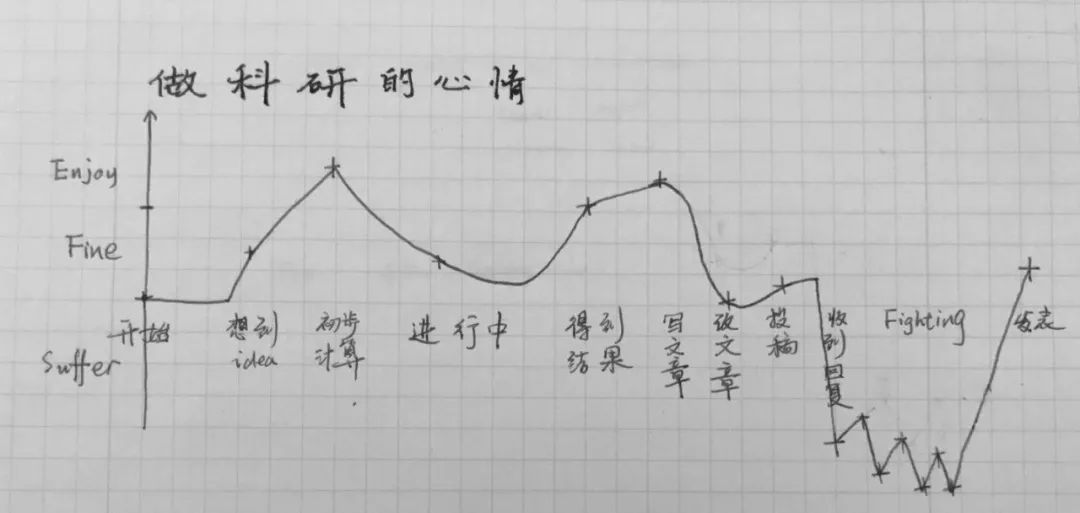 做科研的心情
Enjoy
Fine
Suffer
开始
想到
idea
初步
计算
进行中
得到
结果
写文章
改文章
投稿
收到回复
Fighting
发表